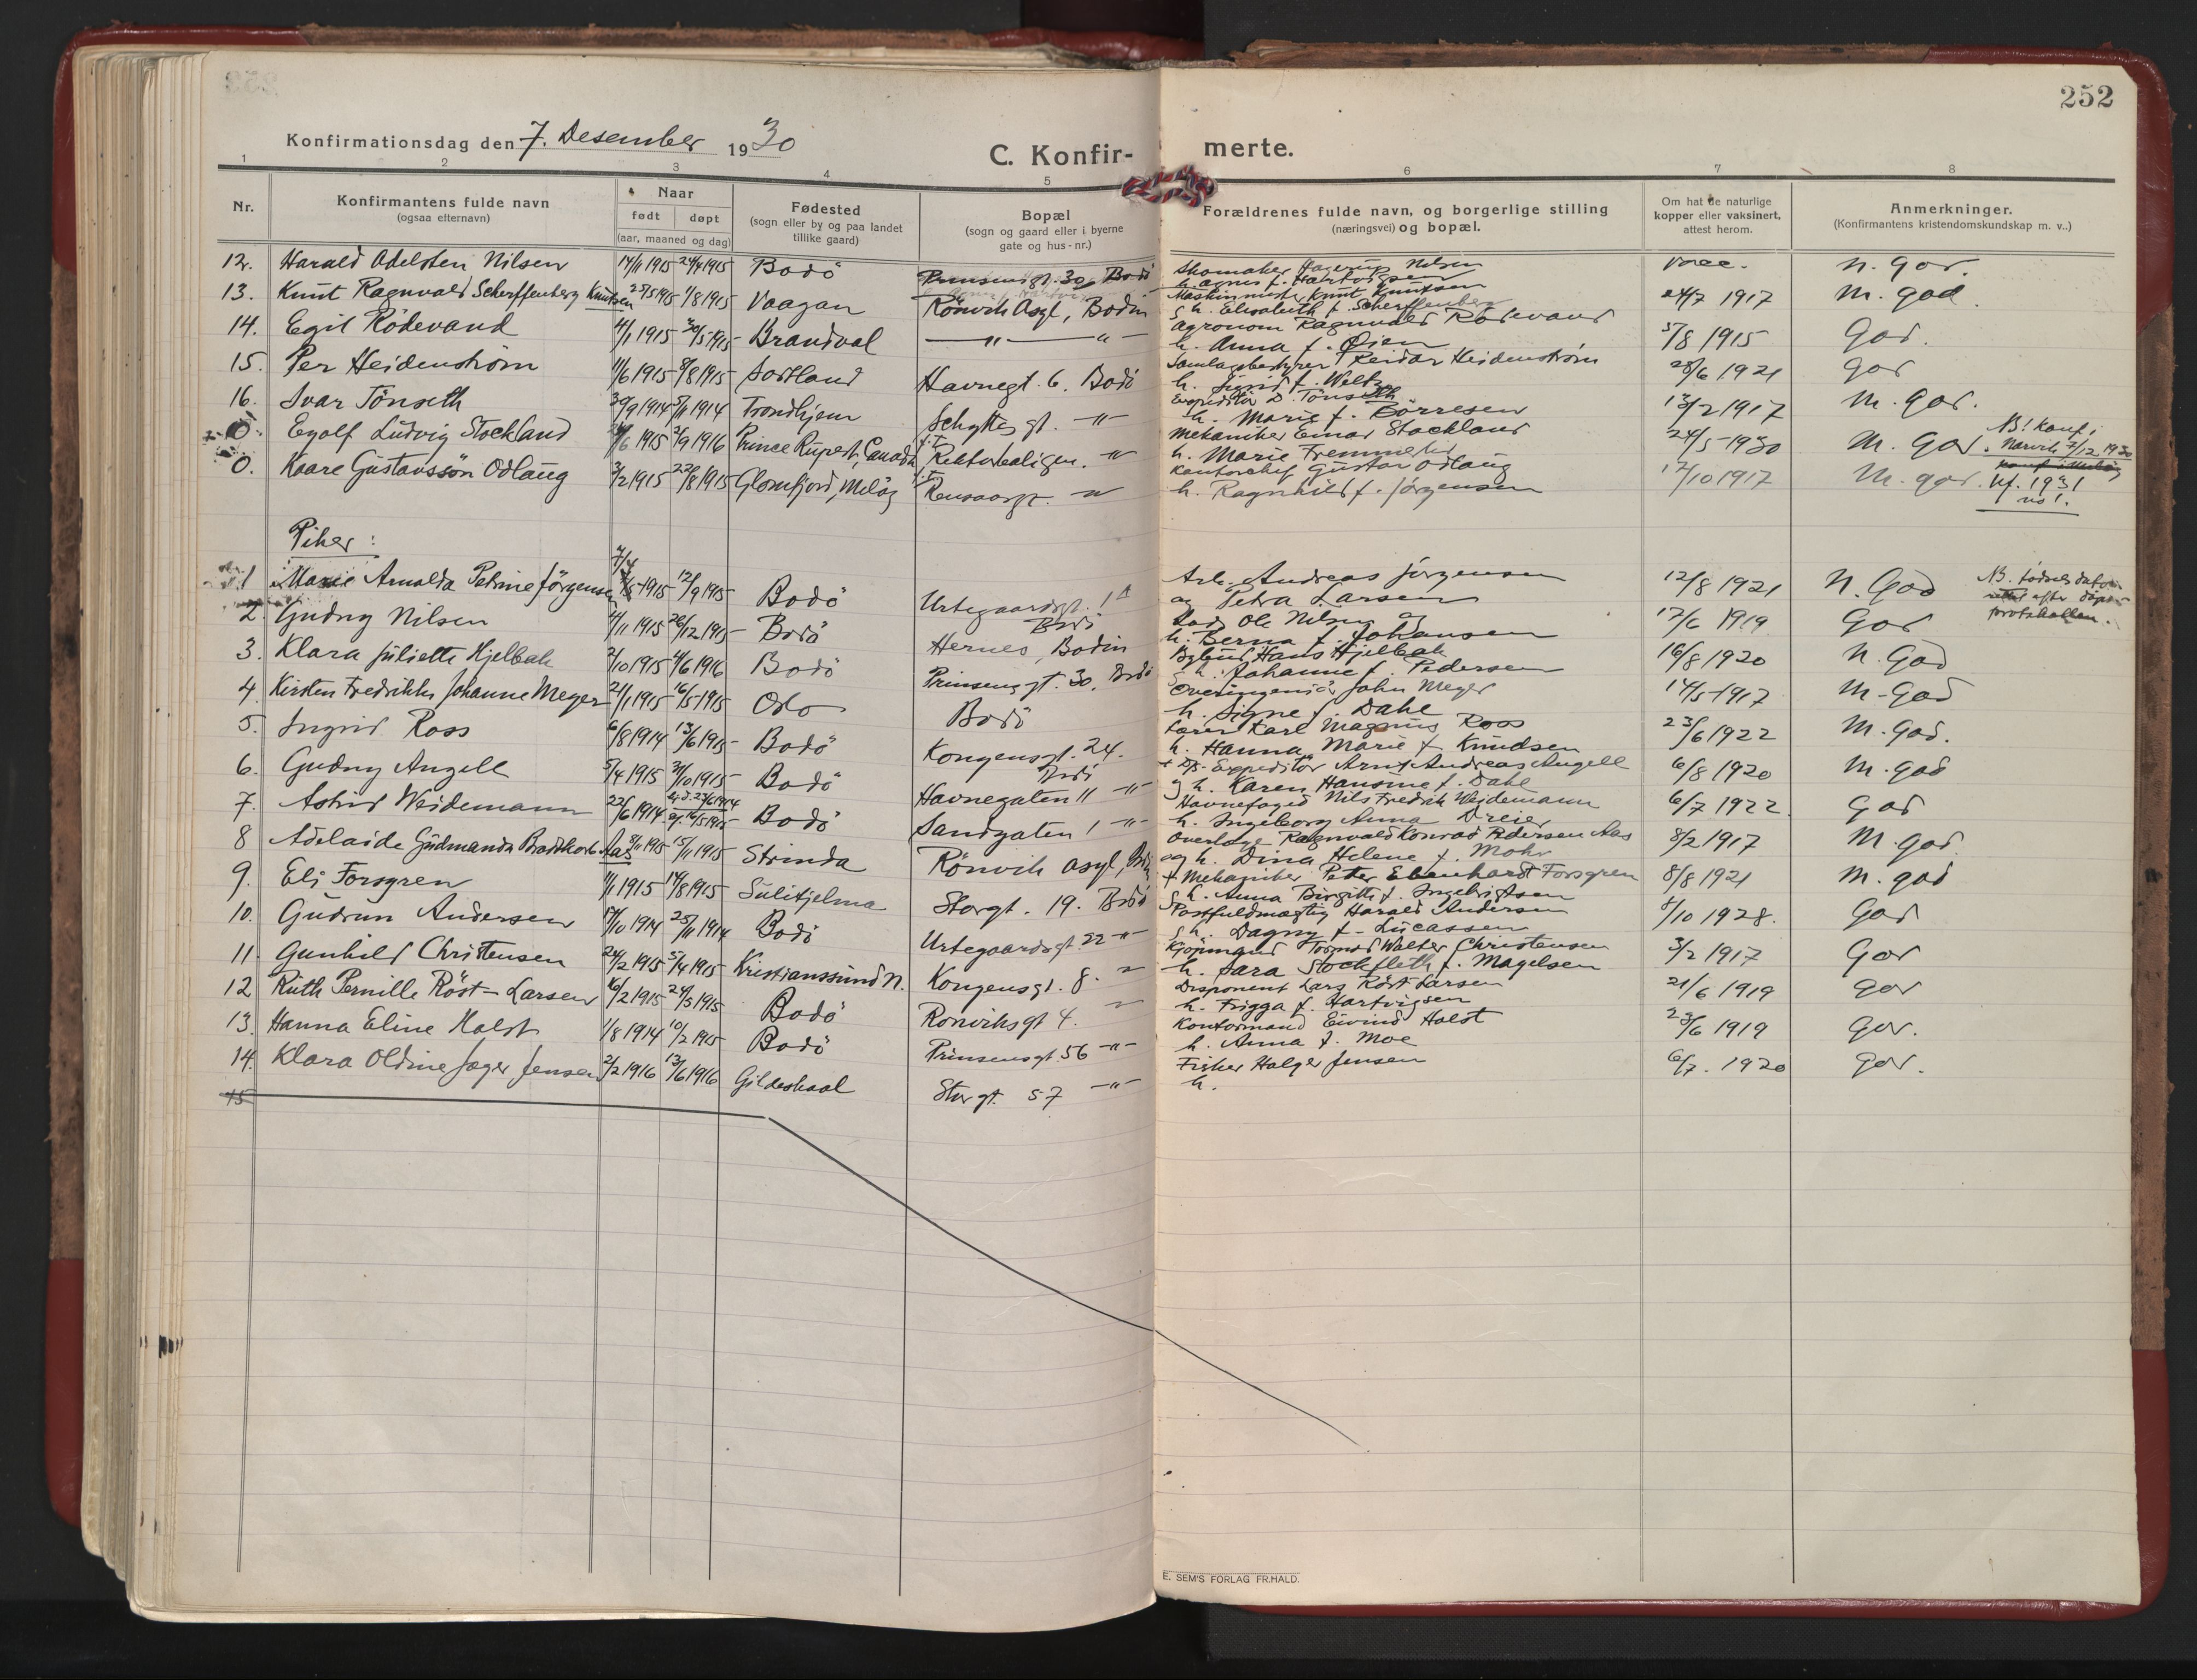 252
Konfirmationsdag den 7. Desember 1930
C. Konfir- merte.
1 2 3 4 5 6 7 8
Nr.
Konfirmantens fulde navn
(ogsaa efternavn)
Naar
født døpt
(aar, maaned og dag)
Fødested
(sogn eller by og paa landet
tillike gaard)
Bopæl
(sogn og gaard eller i byerne
gate og hus-nr.)
Forældrenes fulde navn, og borgerlige stilling
(næringsvei) og bopæl.
Om hat de naturlige
kopper eller vaksinert,
attest herom.
Anmerkninger.
(Konfirmantens kristendomskundskap m. v..)
12. Harald Adelsten Nilsen 14/11 1915 Bodö Prinsensgt. 30 Bodö Skomaker Hagerup Nilsen vacc. N. God.
h. Agnes f. Hartvigsen
13. Knut Ragnvald Scherffenberg Knutsen 25/5 1915 1/8 1915 Vaagan Rönvik Asyl, Bodin Maskinmester Knut Knutsen 24/7 1917 M. God
g h. Elisabeth f. Scherffenberg
14. Egil Rödevand 4/1 1915 30/5 1915 Brandval — " — " — Agronom Ragnvald Rödevand 5/8 1915 God.
h. Anna f. Öien
15. Per Heidenstrøm 1/6 1915 8/8 1915 Sortland Havnegt. 6. Bodö Samlagsbestyrer Reidar Heidenstrøm 28/6 1921 God
h. Sigrid f. Weltz
16. Ivar Tönseth 30/9 1914 5/11 1914 Trondhjem Schyttes gt. -"- Expeditör D. Tönseth 13/2 1917 M. God.
h. Marie f. Börresen
0. Eyolf Ludvig Stockland 1915 2/9 1916 Prince Rupert, Canada Rektorboligen. -"- Mekaniker Einar Stockland 24/5 1930 M. God. NB! Konf. i
Narvik 7/12 1930
h. Marie Tremmelin
0. Kaare Gustavssön Odlaug 3/2 1915 22/8 1915 Glomfjord, Melöy Rensaasgt. -"- Kontorchef Gustav Odlaug 17/10 1917 M. God. Kf. 1931
h. Ragnhild f. Jörgensen
Piker:
7/4
1 Marie Arnolda Petrine Jörgensen 1915 12/9 1915 Bodö Urtegaardsgt. 1A Bodö Arb. Andreas Jörgensen 12/8 1921 N. God NB. fødselsdatoen
rettet efter døpe-
protokollen.
og Petra Larsen
2. Gudny Nilsen 4/11 1915 26/12 1915 Bodö Hernes, Bodin Ole Nilsen og 17/6 1919 God
h. Berna f. Johansen
3. Klara Juliette Hjelbak 2/10 1915 4/6 1916 Bodö Prinsensgt. 30. Bodö Bybud Hans Hjelbak 16/8 1920 N. God
g h. Johanne f. Pedersen
4. Kirsten Fredrikke Johanne Meyer 21/1 1915 16/5 1915 Oslo Bodö Overingeniör John Meyer 14/5 1917 M. God
h. Signe f. Dahl
5. Ingrid Ross 6/8 1914 13/6 1915 Bodö Kongensgt. 24. Bodö Lærer Karl Magnus Ross 23/6 1922 M. God.
h. Hanna Marie f. Knudsen
6. Gudny Angell 5/4 1915 31/10 1915 Bodö Havnegaten 11 -"- D/S-Expeditör Arnt Andreas Angell 6/8 1920 M. God
g h. Karen Hansine f. Dahl
7. Astrid Weidemann 22/6 1914 hj.d. 23/6 1914 Bodö Sandgaten 1 -"- Havnefoged Nils Fredrik Weidemann 6/7 1922 God
h. Ingeborg Anna Dreier
8 Adelaide Gudmanda Bradtkorb Aas 8/11 1915 15/11 1915 Strinda Rönvik asyl, Bodin Overlæge Ragnvald Konrad Pedersen Aas 8/2 1917 M. God.
og h. Dina Helene f. Mohr
9. Eli Forsgren 1/1 1915 14/8 1915 Sulitjelma Storgt. 19. Bodö † Mekaniker Peter Ebenhardt Forsgren 8/8 1921 M. God
g h. Anna Birgitte f. Ingebrigtsen
10. Gudrun Andersen 17/10 1914 25/11 1914 Bodö Urtegaardsgt 22 -"- Postfuldmægtig Harald Andersen 8/10 1928. God
g h. Dagny f. Lucassen
11. Gunhild Christensen 24/2 1915 5/4 1915 Kristianssund N. Kongensgt. 8. -"- Kjöpmand Tormod Walter Christensen 3/2 1917 God
h. Sara Stockfleth f. Magelsen
12 Ruth Pernille Röst-Larsen 16/2 1915 24/5 1915 Bodö Rönviksgt 4. -"- Disponent Lars Röst Larsen 21/6 1919 God
h. Frigga f. Hartvigsen
13. Hanna Eline Holst 1/8 1914 10/2 1915 Bodö Prinsensgt. 56 -"- Kontormand Eivind Holst 23/6 1919 God.
h. Anna f. Moe
14. Klara Oldine Jæger Jensen 2/2 1916 13/6 1916 Gildeskaal Storgt. 57 -"- Fisker Holger Jensen 6/7. 1920 God.
h.
15
E. SEM'S FORLAG FR.HALD.